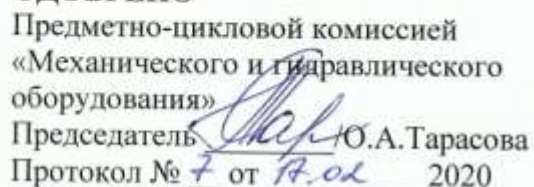 Предметно-цикловой комиссией
«Механического и гидравлического
оборудования»
Председатель О.А.Тарасова
Протокол № 7 от 17.02 2020